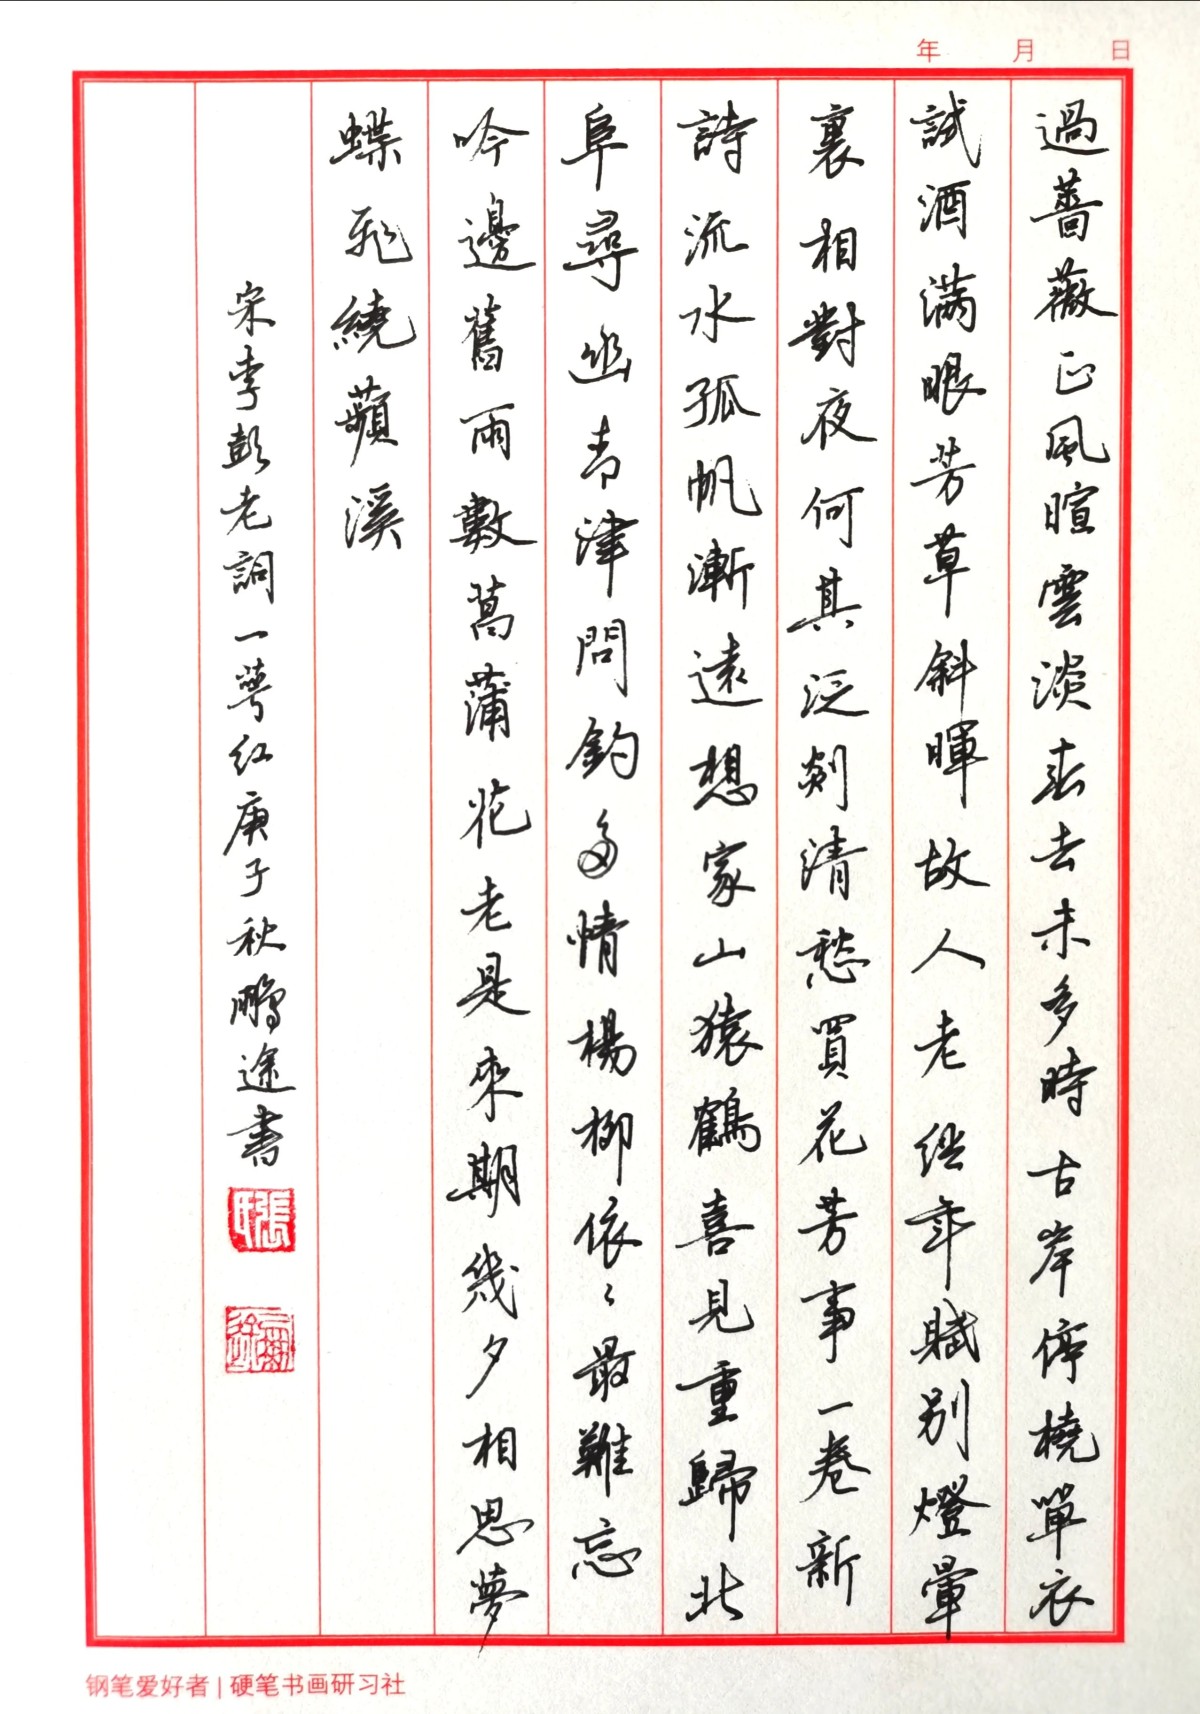 年 月 日
過薔薇正風暄雲淡春去未多時古岸停橈單衣
試酒满眼芳草斜暉故人老經年賦别燈暈
裏相對夜何其泛剡清愁買花芳事一卷新
詩流水孤帆漸遠想家山猿鶴喜見重歸北
阜尋幽青津問釣多情楊柳依〻最難忘
吟邊舊雨數菖蒲花老是來期幾夕相思夢
蝶飛繞蘋溪
宋李彭老詞一萼红庚子秋鵬途書
钢笔爱好者 | 硬笔书画研习社